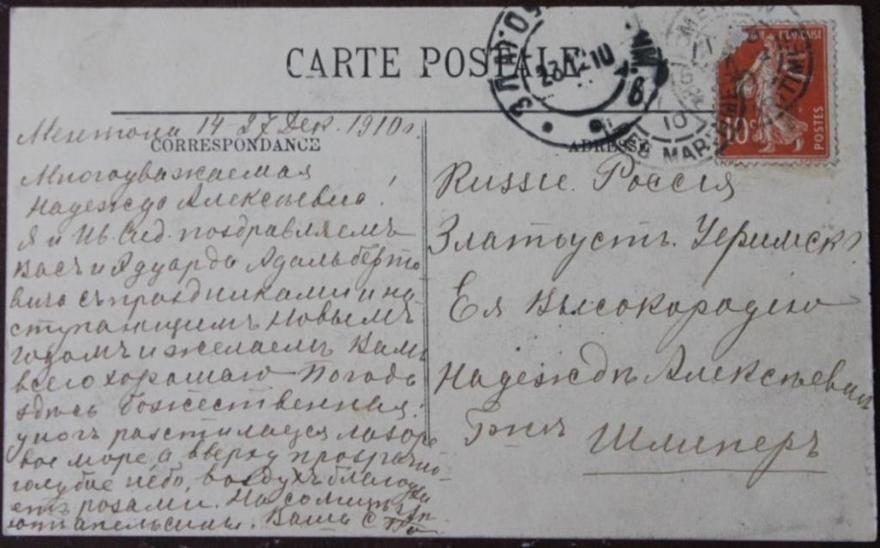 CARTE POSTALE
CORRESPONDANCE
ADRESSE
Ментона 14-27 Дек. 1910 г.
Многоуважаемая
Надежда Алексѣевна!
Я и Ив. Сид. поздравляемъ
Васъ и Эдуарда Адальберто
вича съ праздниками и на-
ступающимъ Новымъ
годомъ и желаемъ Вамъ
всего хорошаго Погода
здѣсь божественная:
у ногъ разстилается лазоре
вое море, а вверху прозрачно-
голубое небо, воздухъ благоуха
етъ розами. На солнцѣ
апельсины. Ваша
Russie. Россія
Златоустъ. Уфимск. г.
Ея Высокородію
Надеждѣ Алексѣевнѣ
Г-жѣ Шлиперъ
23 12 10
10 c
POSTES